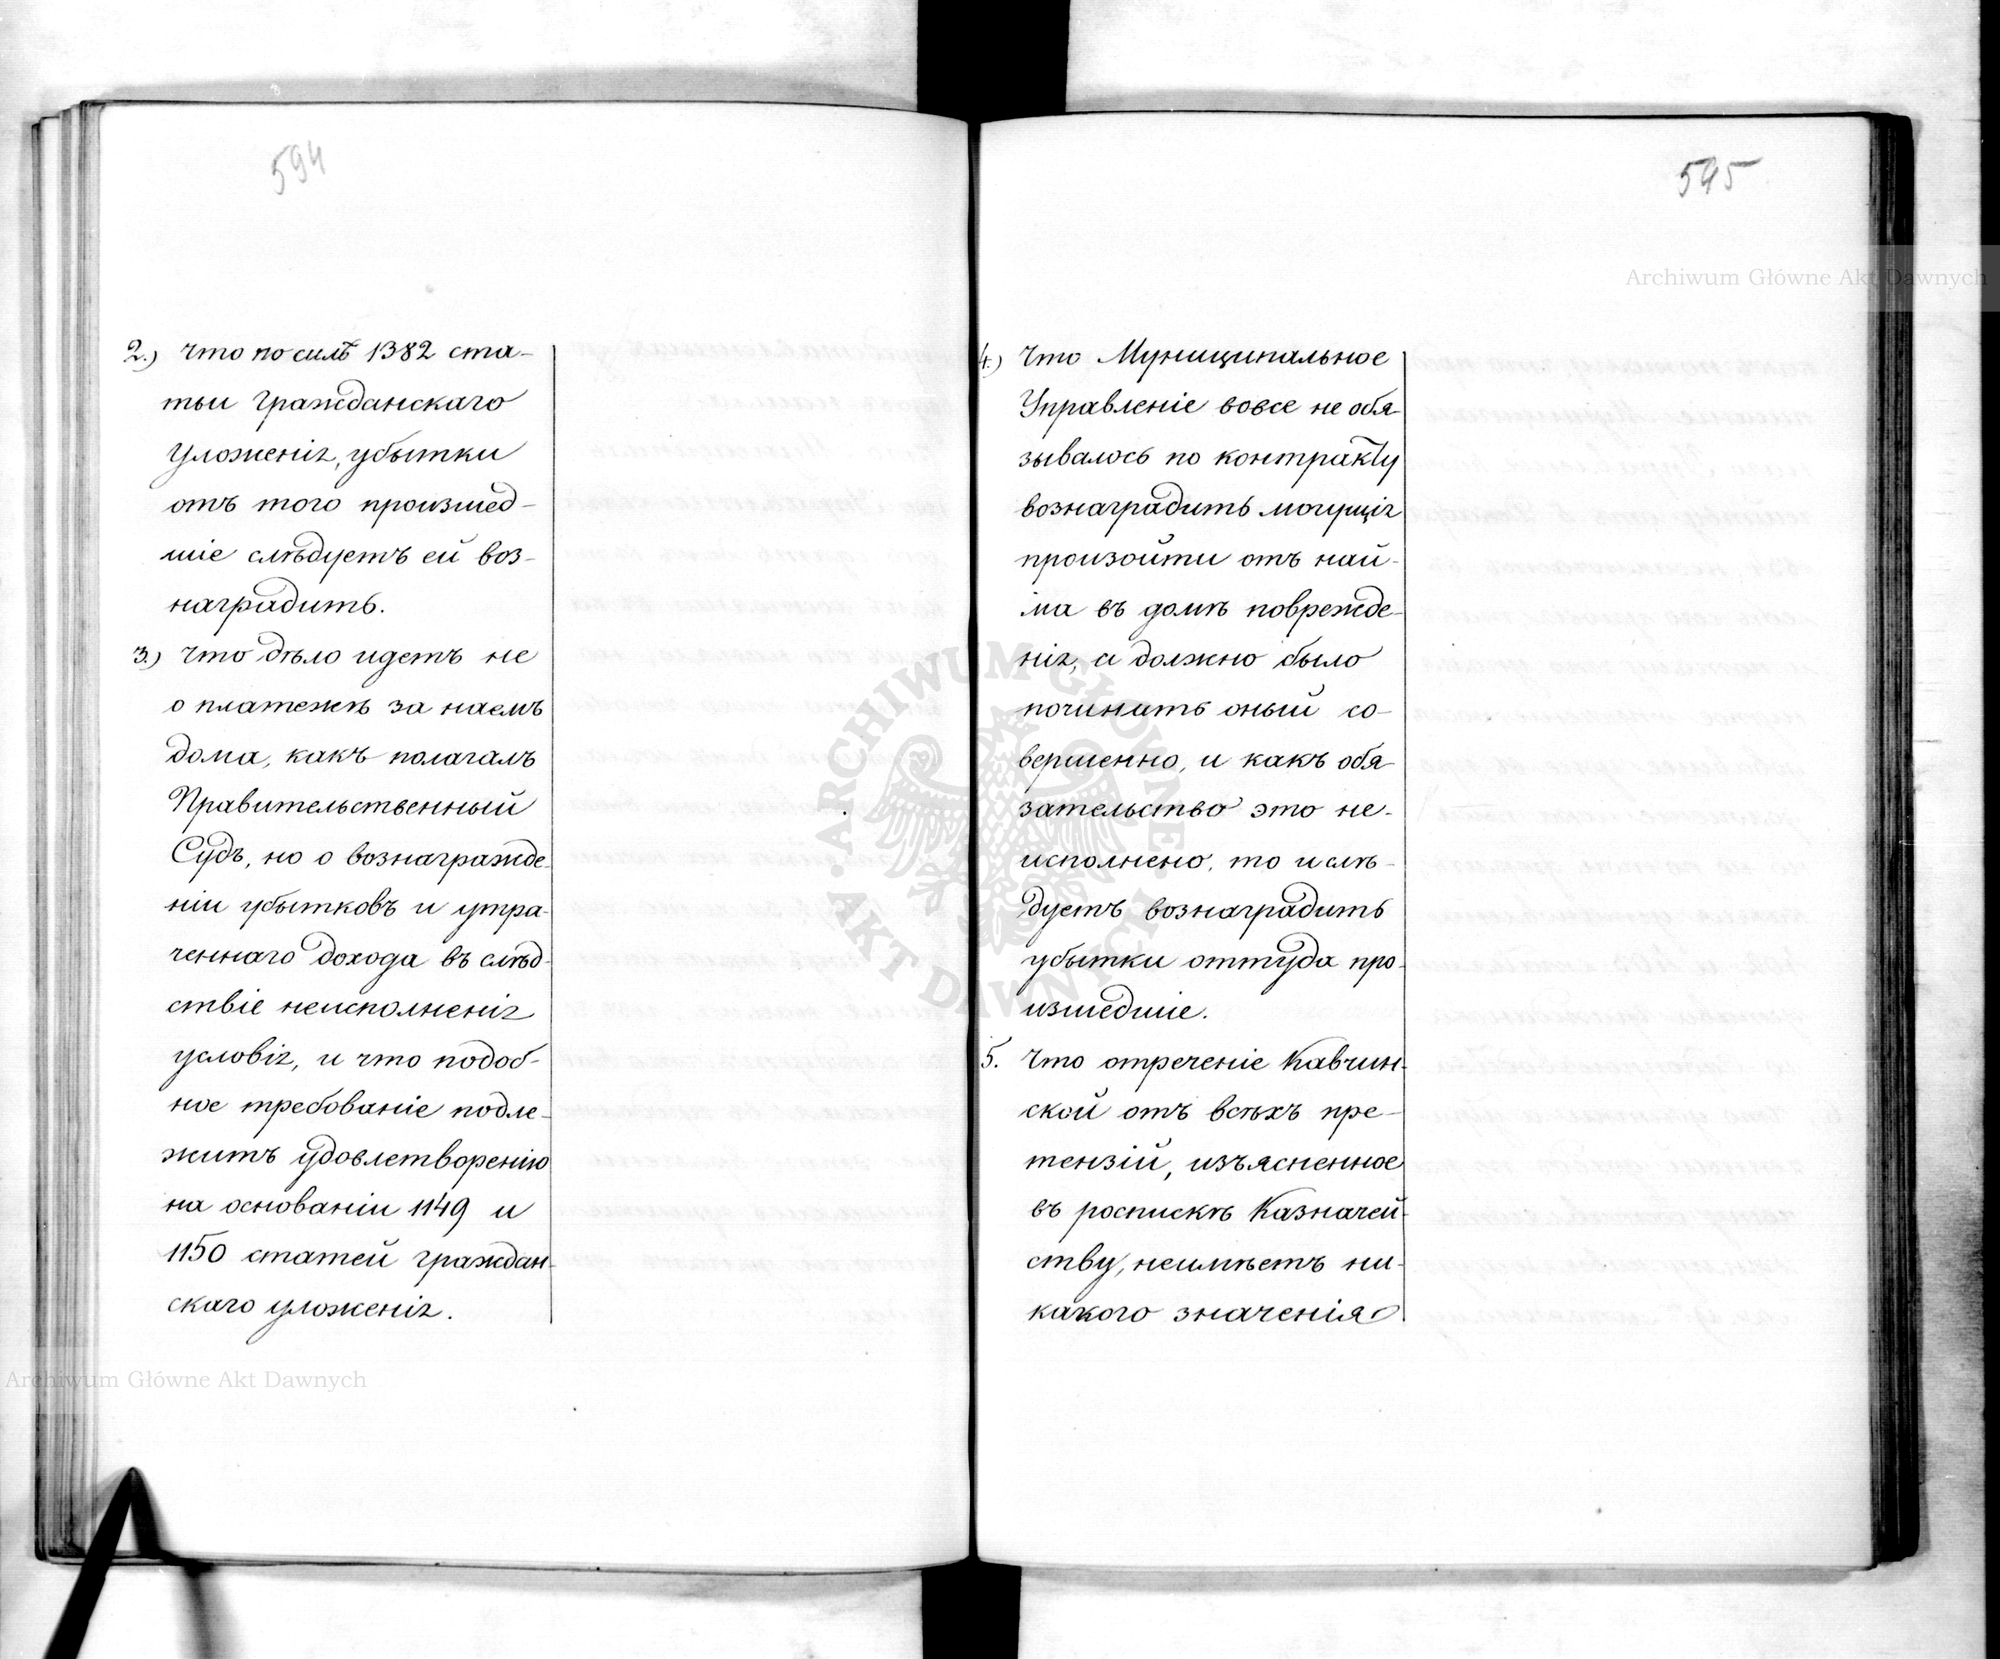 594
2.) что по силѣ 1382 ста-
тьи Гражданскаго
Уложенія, убытки
отъ того произшед-
шіе слѣдуетъ ей воз-
наградить.
3.) что дѣло идетъ не
о платежѣ за наемъ
дома, какъ полагалъ
Правительственный
Судъ, но о вознагражде-
ніи убытковъ и утра-
ченнаго дохода въ слѣд-
ствіе неисполненія
условія, и что подоб-
ное требованіе подле-
житъ удовлетворенію
на основаніи 1149 и
1150 статей граждан-
скаго уложенія.
595
4.) Что Муниципальное
Управленіе вовсе не обя-
зывалось по контракту
вознаградить могущія
произойти отъ най-
ма въ домѣ поврежде-
нія, а должно было
починить оный со-
вершенно, и какъ обя-
зательство это не-
исполнено, то и слѣ-
дуетъ вознаградить
убытки оттуда про-
изшедшіе.
5. Что отреченіе Кавчин-
ской отъ всѣхъ пре-
тензій, изъясненное
въ роспискѣ Казначей-
ству, неимѣетъ ни-
какого значенія
Archiwum Główne Akt Dawnych
Archiwum Główne Akt Dawnych
ARCHIWUM GŁÓWNE AKT DAWNYCH